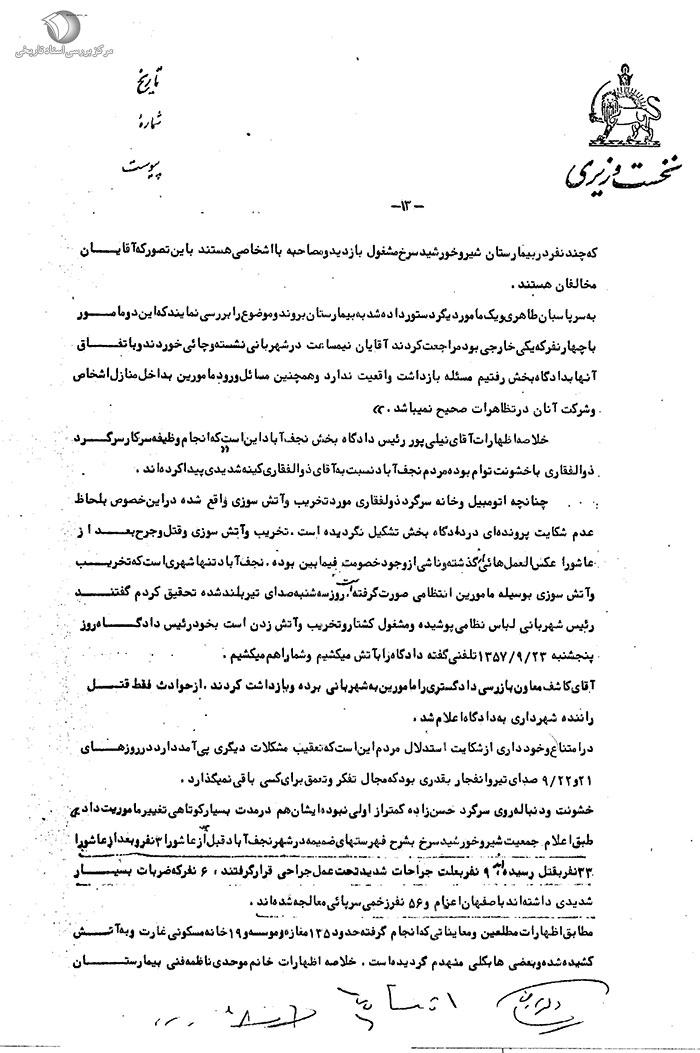 مرکز بررسی اسناد تاریخی
تاریخ
شماره
پیوست
نخست وزیری
-۱۳-
که چند نفر در بیمارستان شیر و خورشید سرخ مشغول بازدید و مصاحبه با اشخاصی هستند باین تصور که آقایان
مخالفان هستند .
به سرپاسبان طاهری و یک مامور دیگر دستور داده شد به بیمارستان بروند و موضوع را بررسی نمایند که این دو مامور
با چهار نفر که یکی خارجی بود مراجعت کردند آقایان نیمساعت در شهربانی نشسته و چائی خوردند و با تفاق
آنها بدادگاه بخش رفتیم مسئله بازداشت واقعیت ندارد و همچنین مسائل ورود مامورین بداخل منازل اشخاص
و شرکت آنان در تظاهرات صحیح نمیباشد . »
خلاصه اظهارات آقای نیلی پور رئیس دادگاه بخش نجف آباد این است « که انجام وظیفه سرکار سرگرد
ذوالفقاری با خشونت توام بوده مردم نجف آباد نسبت به آقای ذوالفقاری کینه شدیدی پیدا کرده اند .
چنانچه اتومبیل و خانه سرگرد ذولفقاری مورد تخریب و آتش سوزی واقع شده در این خصوص بلحاظ
عدم شکایت پرونده ای در دادگاه بخش تشکیل نگردیده است . تخریب و آتش سوزی و قتل و جرح بعد از
عاشورا عکس العمل هائی از گذشته و ناشی از وجود خصومت فیمابین بوده . نجف آباد تنها شهری است که تخریب
و آتش سوزی بوسیله مامورین انتظامی صورت گرفته است روز سه شنبه صدای تیر بلند شده تحقیق کردم گفتند
رئیس شهربانی لباس نظامی پوشیده و مشغول کشتار و تخریب و آتش زدن است بخود رئیس دادگاه روز
پنجشنبه ۱۳۵۷/۹/۲۳ تلفنی گفته دادگاه را بآتش میکشیم و شما را هم میکشیم .
آقای کاشف معاون بازرسی دادگستری را مامورین به شهربانی برده و بازداشت کردند . از حوادث فقط قتل
راننده شهرداری به دادگاه اعلام شد .
در امتناع و خودداری از شکایت استدلال مردم این است که تعقیب مشکلات دیگری پی آمد دارد در روزهای
۲۱ و ۹/۲۲ صدای تیر و انفجار بقدری بود که مجال تفکر و تعمق برای کسی باقی نمیگذارد .
خشونت و دنباله روی سرگرد حسن زاده کمتر از اولی نبوده ایشان هم در مدت بسیار کوتاهی تغییر ماموریت داد »
طبق اعلام جمعیت شیر و خورشید سرخ بشرح فهرستهای ضمیمه در شهر نجف آباد قبل از عاشورا ۳ نفر و بعد از عاشورا
۳۳ نفر بقتل رسیده اند ۹ نفر بعلت جراحات شدید تحت عمل جراحی قرار گرفتند ، ۶ نفر که ضربات بسیار
شدیدی داشته اند باصفهان اعزام و ۵۶ نفر زخمی سرپائی معالجه شده اند .
مطابق اظهارات مطلعین و معایناتی که انجام گرفته حدود ۱۳۵ مغازه و موسسه و ۱۹ خانه مسکونی غارت و به آتش
کشیده شده و بعضی ها بکلی منهدم گردیده است . خلاصه اظهارات خانم موحدی ناظمه فنی بیمارستان